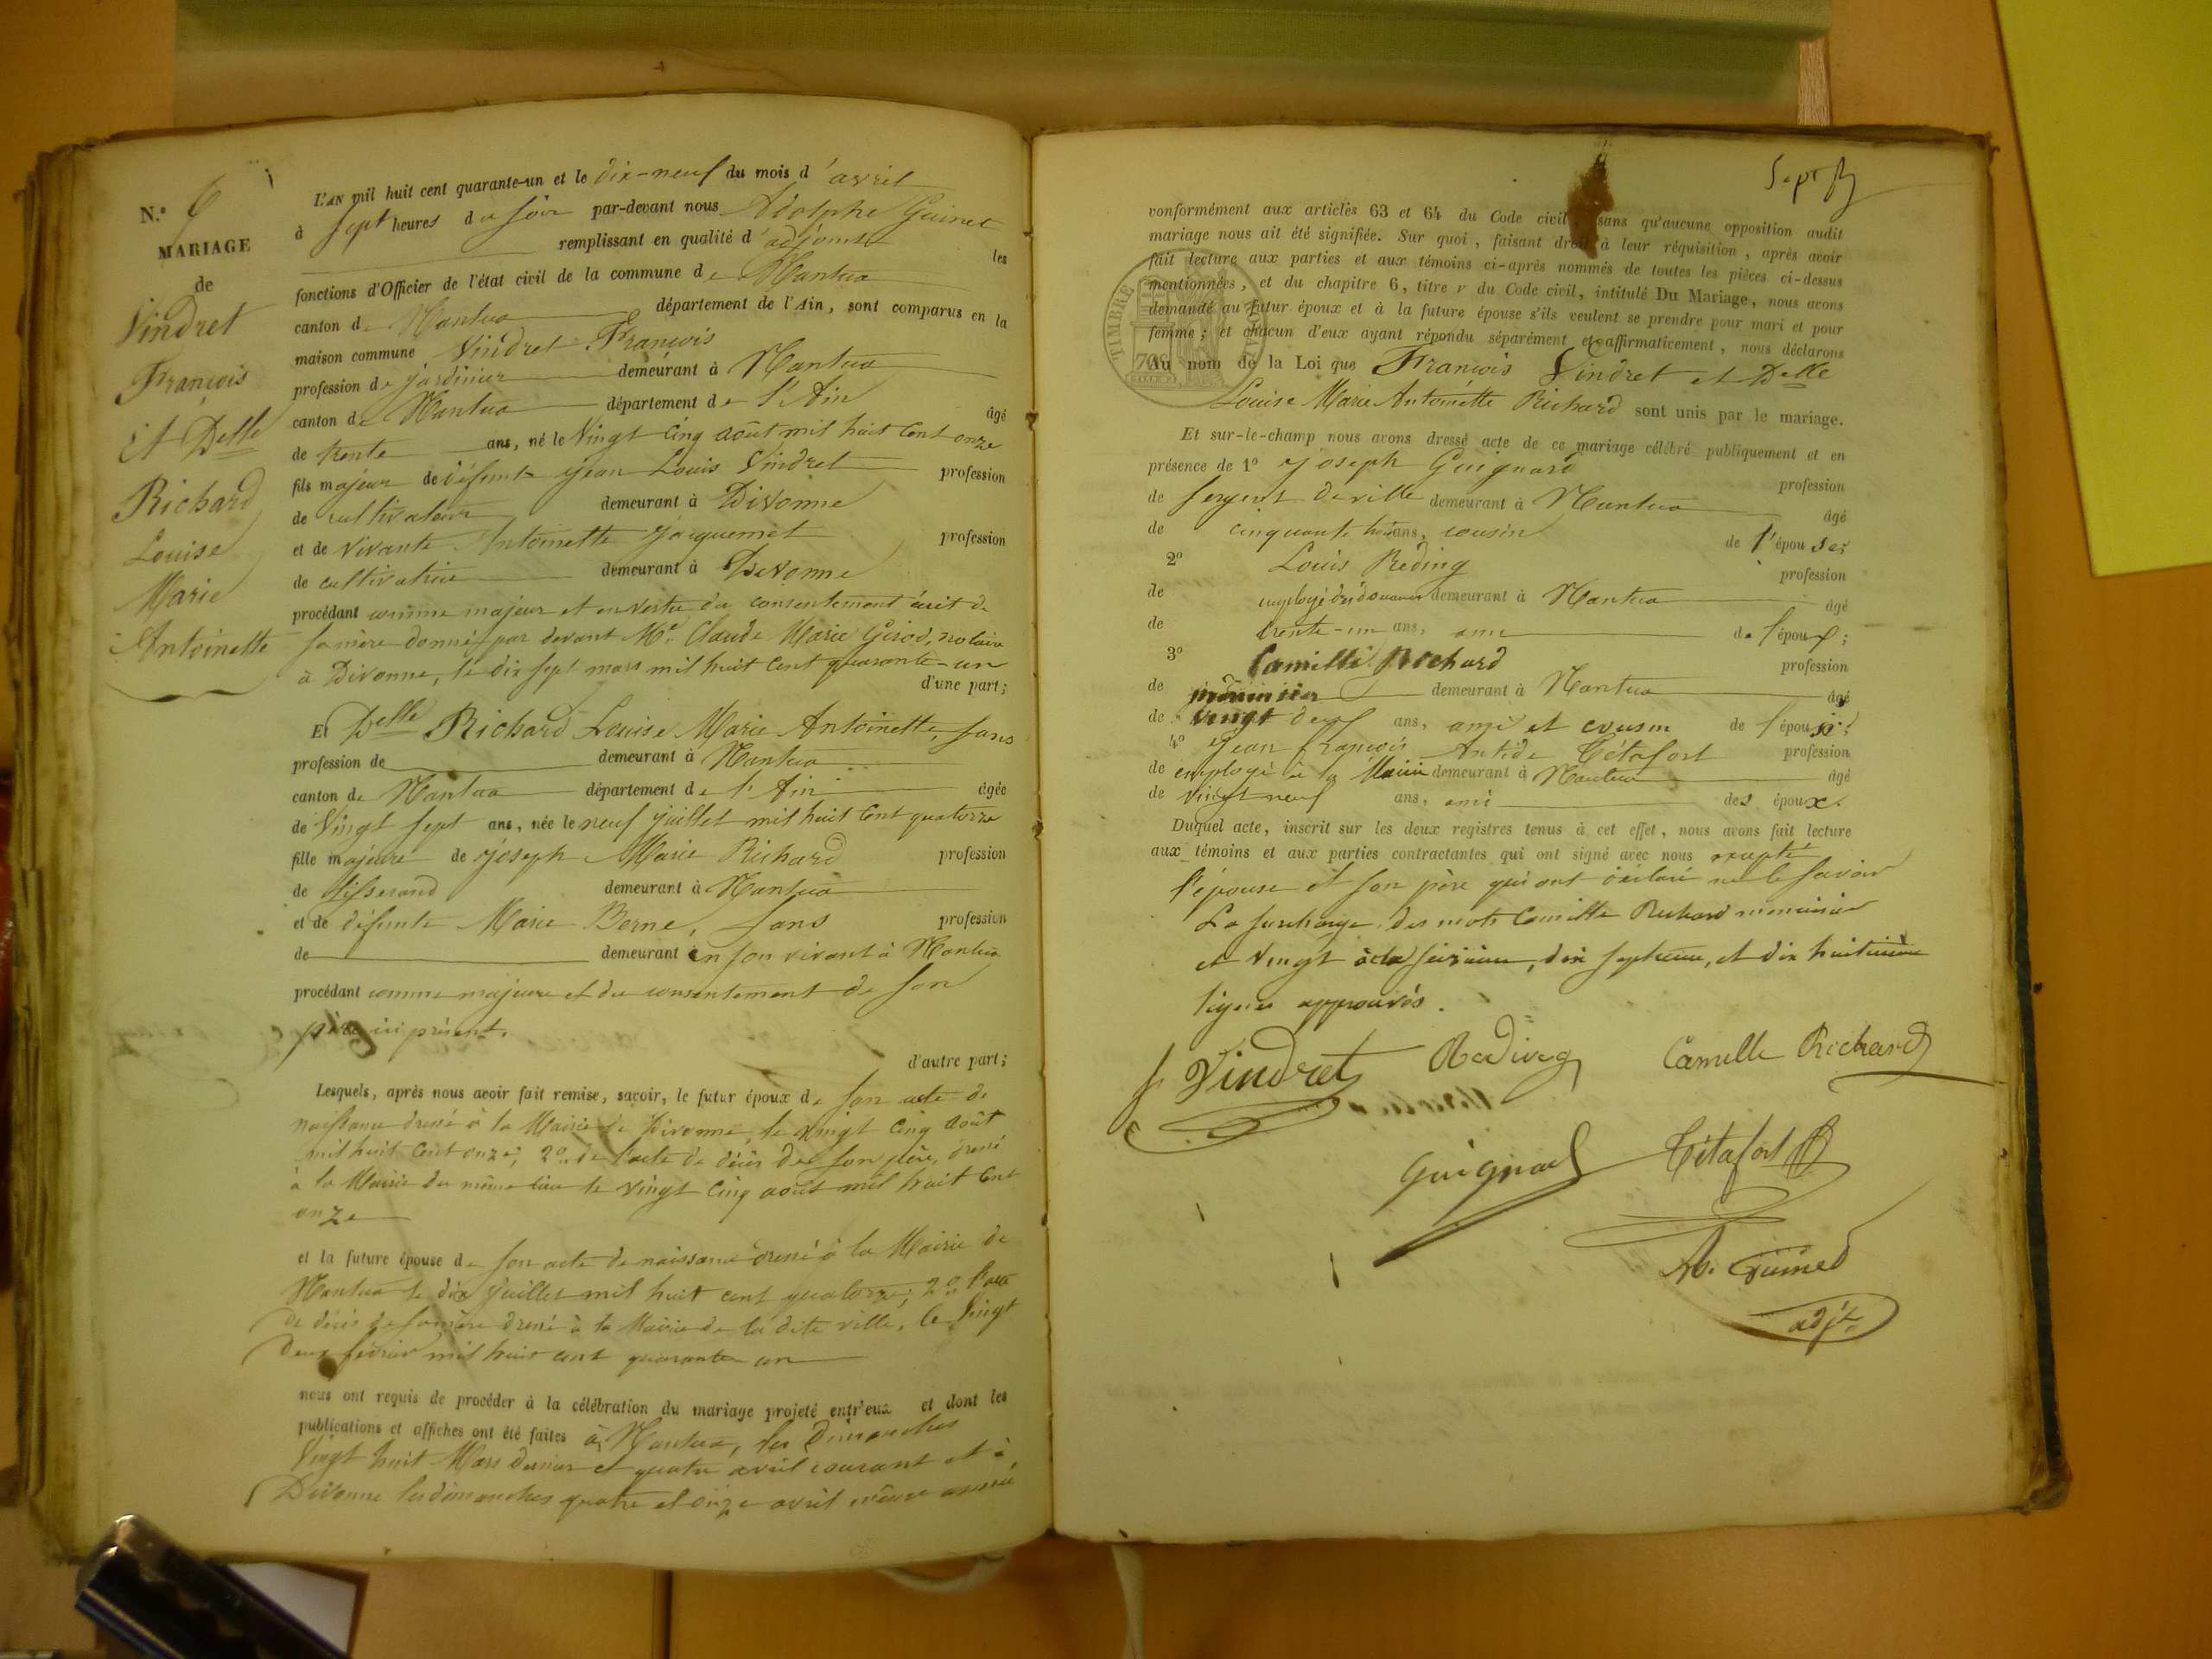 N.º
MARIAGE
de
Vindret
François
Et Delle
Richard
Louise
Marie
Antoinette
L'AN mil huit cent quarante-un et le dix-neuf du mois d'avril
à sept heures du soir par-devant nous Adolphe Guinet
remplissant en qualité d'adjoint les
fonctions d'Officier de l'état civil de la commune de Nantua
canton de Nantua département de l'Ain, sont comparus en la
maison commune Vindret François
profession de jardinier demeurant à Nantua
canton de Nantua département de l'Ain âgé
de trente ans, né le Vingt Cinq août mil huit Cent onze
fils majeur de défunt Jean Louis Vindret profession
de cultivateur demeurant à Divonne
et de vivante Antoinette Jacquemet profession
de cultivatrice demeurant à Divonne
procédant comme majeur et en vertu du consentement écrit de
sa mère donné par devant Me Claude Marie Girod, notaire
à Divonne, le dix sept mars mil huit Cent quarante-un
d'une part;
Et Delle Richard Louise Marie Antoinette, sans
profession de demeurant à Nantua
canton de Nantua département de l'Ain âgée
de Vingt sept ans, née le neuf juillet mil huit Cent quatorze
fille majeure de Joseph Marie Richard profession
de tisserand demeurant à Nantua
et de défunte Marie Berne, sans profession
de demeurant en son vivant à Nantua
procédant comme majeure et du consentement de son
père ici présent.
d'autre part;
Lesquels, après nous avoir fait remise, savoir, le futur époux de son acte de
naissance dressé à la Mairie de Divonne, le vingt Cinq août
mil huit Cent onze; 2º de l'acte de décès de son père, dressé
à la Mairie du même lieu le vingt Cinq août mil huit Cent
onze
et la future épouse de son acte de naissance dressé à la Mairie de
Nantua le dix Juillet mil huit cent quatorze; 2º l'acte
de décès de sa mère dressé à la Mairie de la dite ville, le Vingt
Deux février mil huit cent quarante un
nous ont requis de procéder à la célébration du mariage projeté entr'eux et dont les
publications et affiches ont été faites à Nantua, les Dimanches
Vingt huit Mars dernier et quatre avril courant et à
Divonne les dimanches quatre et onze avril même année
Sept
conformément aux articles 63 et 64 du Code civil sans qu'aucune opposition audit
mariage nous ait été signifiée. Sur quoi, faisant droit à leur réquisition, après avoir
fait lecture aux parties et aux témoins ci-après nommés de toutes les pièces ci-dessus
mentionnées, et du chapitre 6, titre v du Code civil, intitulé Du Mariage, nous avons
demandé au futur époux et à la future épouse s'ils veulent se prendre pour mari et pour
femme; et chacun d'eux ayant répondu séparément et affirmativement, nous déclarons
TIMBRE ROYAL
70c
Au nom de la Loi que François Vindret et Delle
Louise Marie Antoinette Richard sont unis par le mariage.
Et sur-le-champ nous avons dressé acte de ce mariage célébré publiquement et en
présence de 1º Joseph Guignard profession
de sergent de ville demeurant à Nantua âgé
de cinquante huit ans, cousin de l'épouse;
2º Louis Reding profession
de employé des douanes demeurant à Nantua âgé
de trente-un ans, ami de l'époux;
3º Camille Richard profession
de menuisier demeurant à Nantua âgé
de Vingt deux ans, ami et cousin de l'épouse;
4º Jean François Antide Tétafort profession
de employé à la Mairie demeurant à Nantua âgé
de Vingt neuf ans, ami des époux.
Duquel acte, inscrit sur les deux registres tenus à cet effet, nous avons fait lecture
aux témoins et aux parties contractantes qui ont signé avec nous excepté
l'épouse et son père qui ont déclaré ne le savoir
La surcharge des mots Camille Richard menuisier
et Vingt à la seizième, dix septième, et dix huitième
lignes approuvés.
f Vindret Reding Camille Richard
Guignard Tétafort
Ad. Guinet
adjt